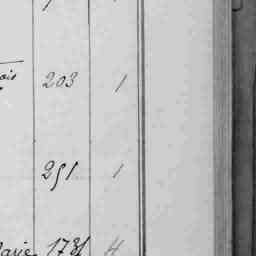 ois 203 1
251 1
Marie 1731 4